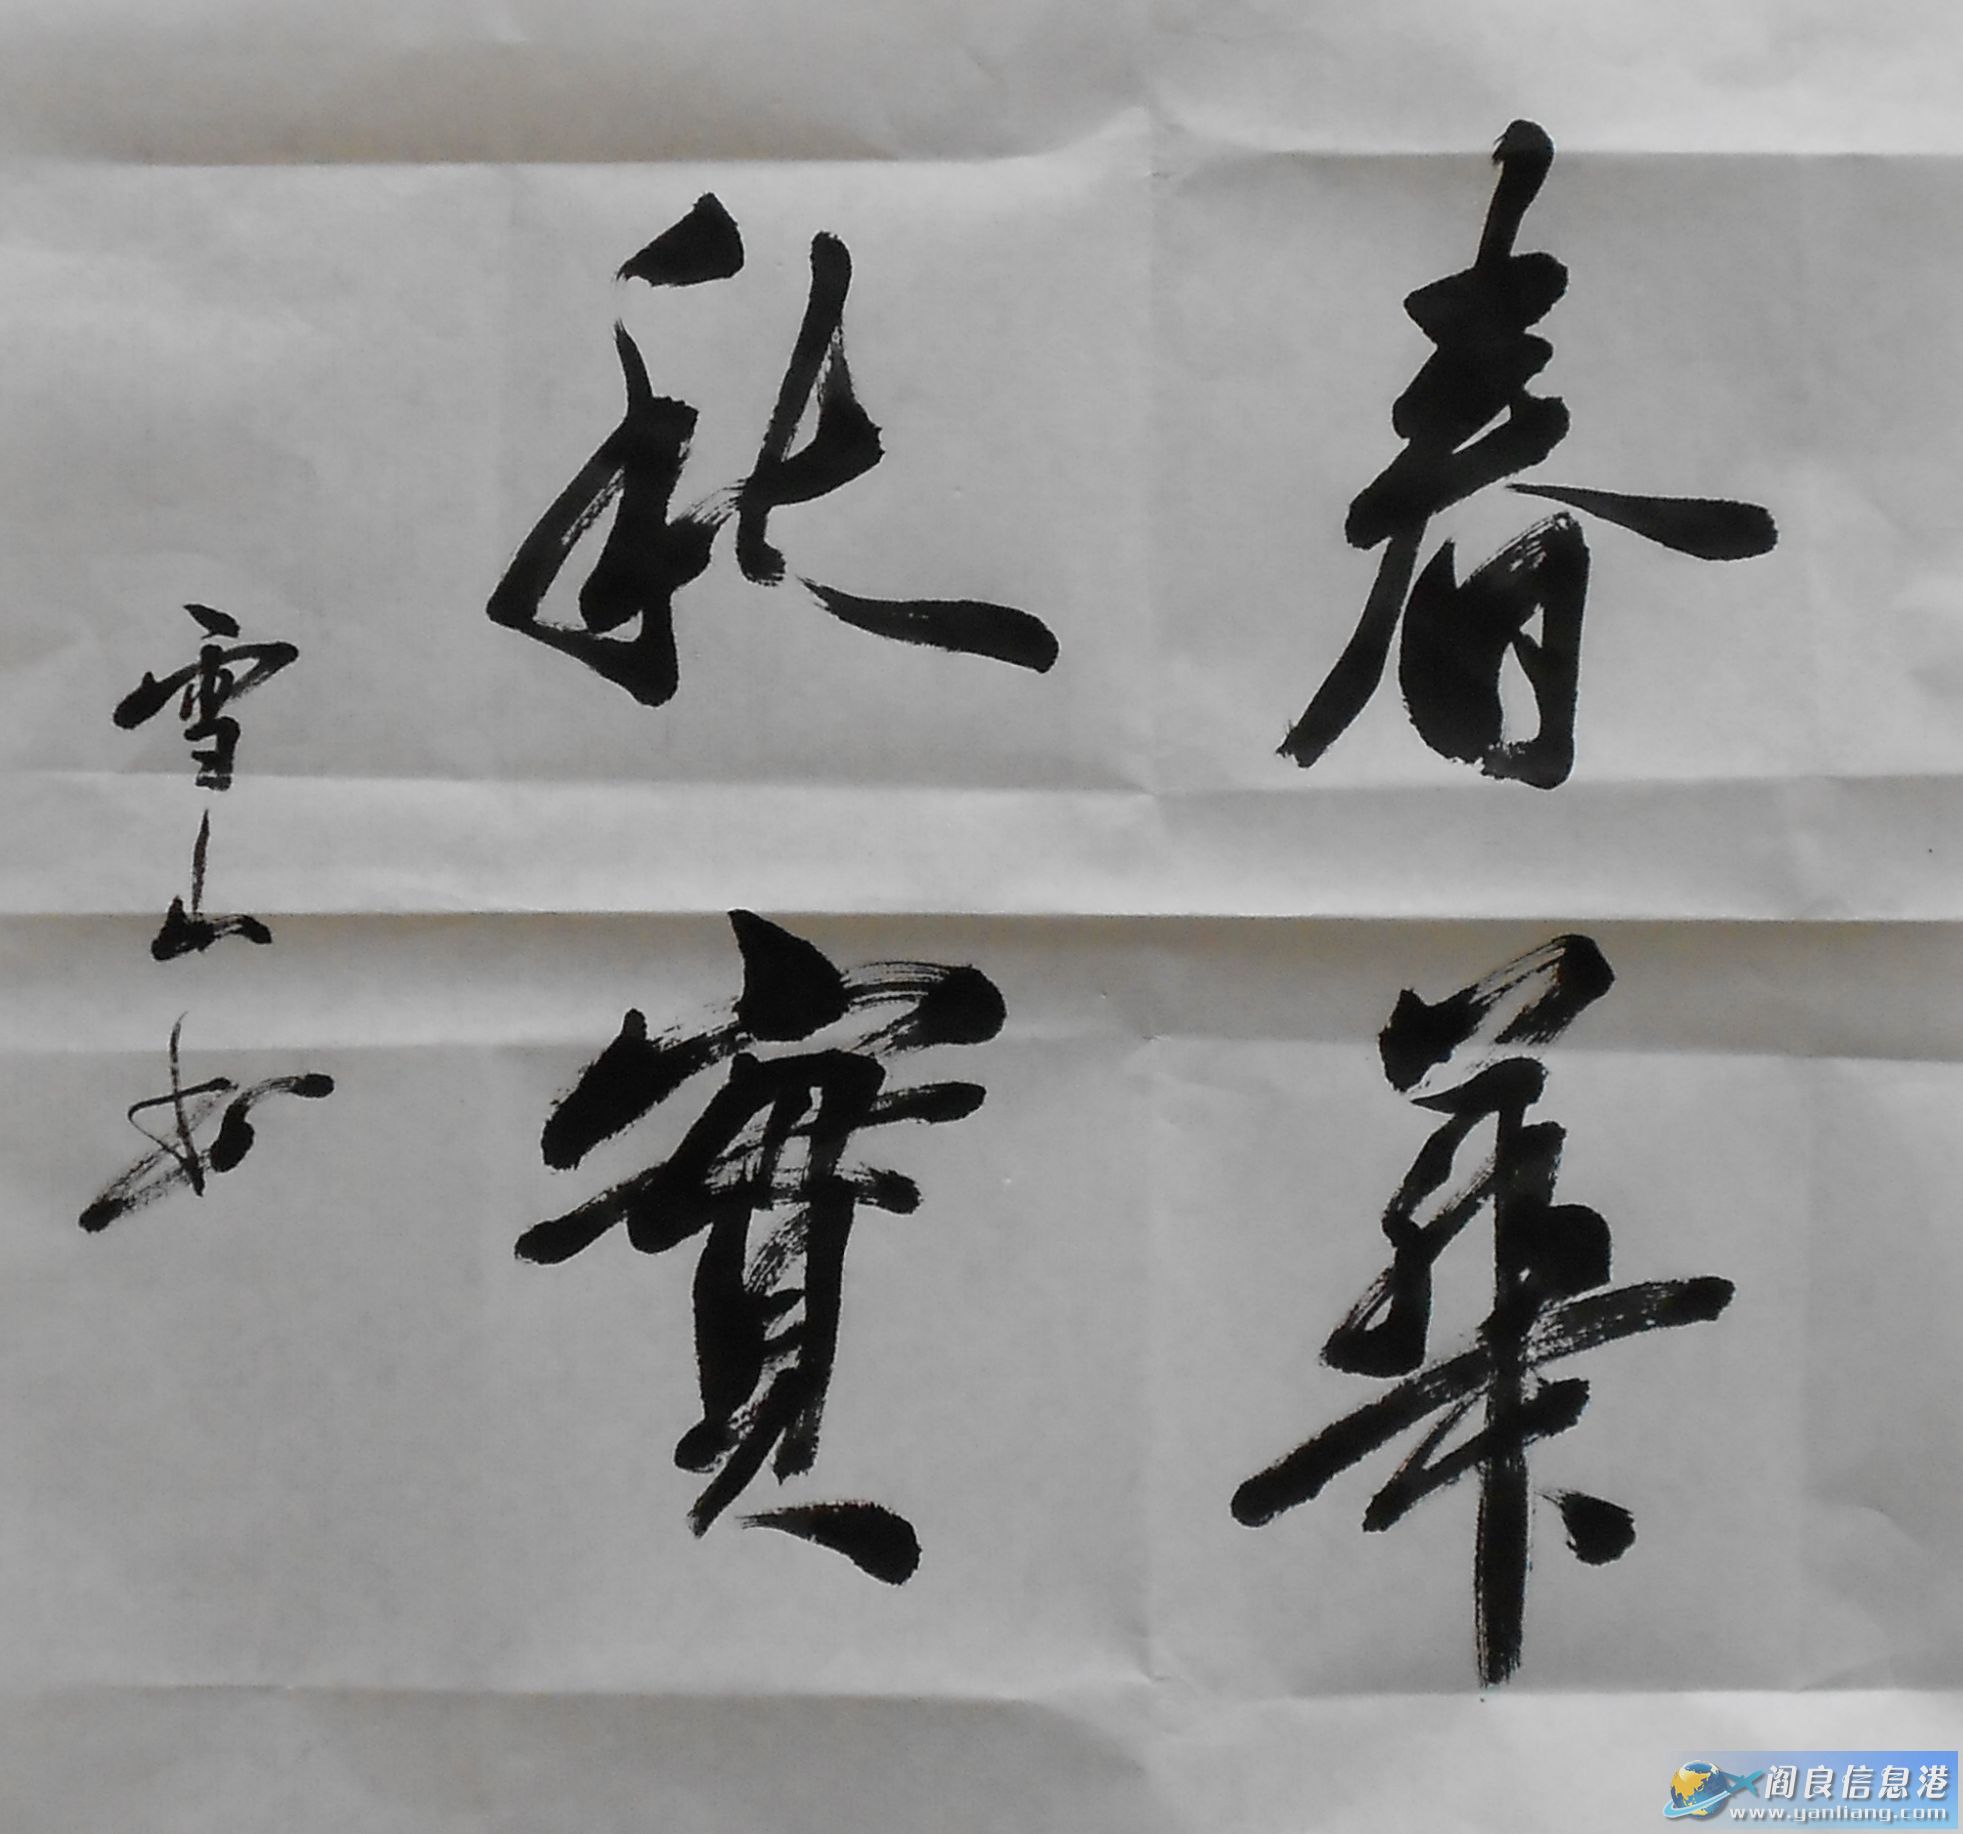 春華
秋實
雪山
阎良信息港
www.yanliang.com